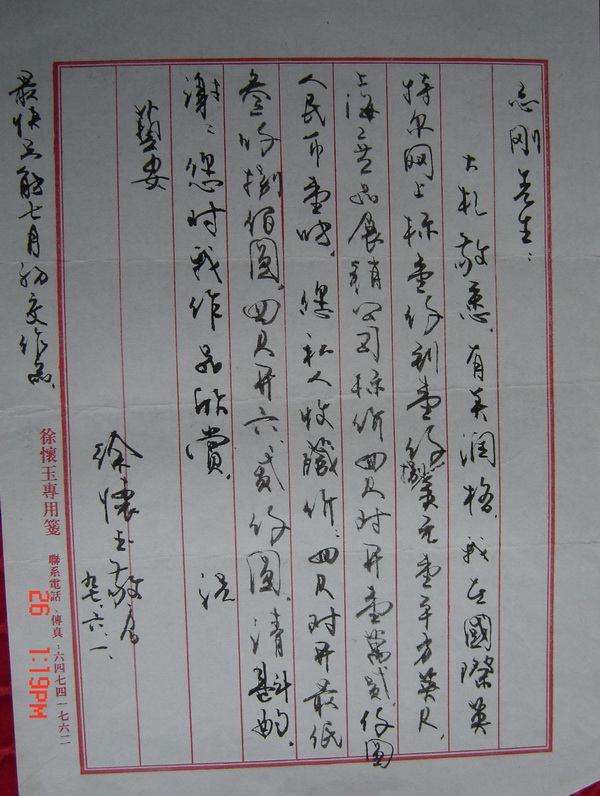 志刚先生：
大札敬悉。有关润格，我在國際英
特尔网上标壹仟到壹仟捌美元壹平方英尺。
上海艺品展销公司标价四尺对开壹萬貳仟圆
人民币壹帧。您私人收藏价：四尺对开最低
叁仟捌佰圆，四尺开六貳仟圆。请斟酌。
谢谢您对我作品欣赏。 祝
藝安
徐懷玉敬启
九七.六.一.
最快只能七月初交作品。
徐懷玉專用箋 聯系電話、傳真：六四七四一七六二
26 1:19PM